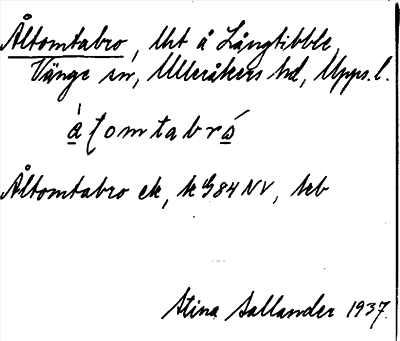 Åltomtabro, lht å Långtibble,
Vänge sn, Ulleråkers hd, Upps. l.
Åltomtabro ek, k 984 NV, beb
Stina Sallander 1937.